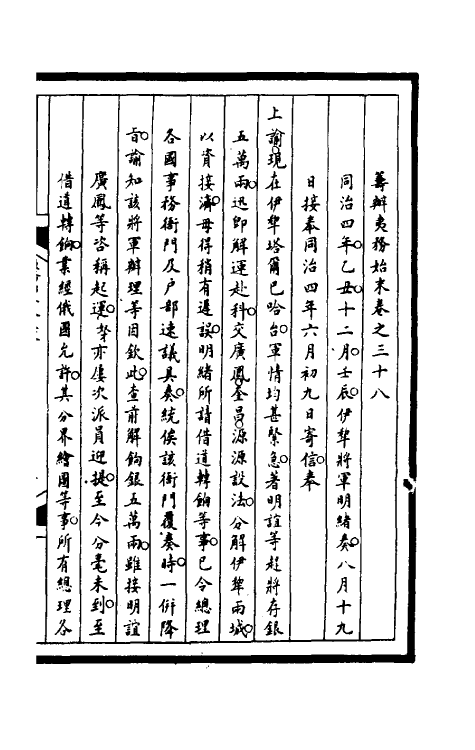 籌辦夷務始末卷之三十八
同治四年乙丑十二月壬辰伊犂將軍明緒奏八月十九
日接奉同治四年六月初九日寄信奉
上諭現在伊犂塔爾巴哈台軍情均甚緊急著明誼等趕將存銀
五萬兩迅即解運赴科交廣鳳奎昌源源設法分解伊犂兩城
以資接濟毋得稍有遲誤明緒所請借道轉餉等事已令總理
各國事務衙門及户部速議具奏統俟該衙門覆奏時一併降
旨諭知該將軍辦理等因欽此查前解餉銀五萬兩雖接明誼
廣鳳等咨稱起運孥亦屢次派員迎提至今分毫未到至
借道轉餉業經俄國允許其分界繪圖等事所有總理各